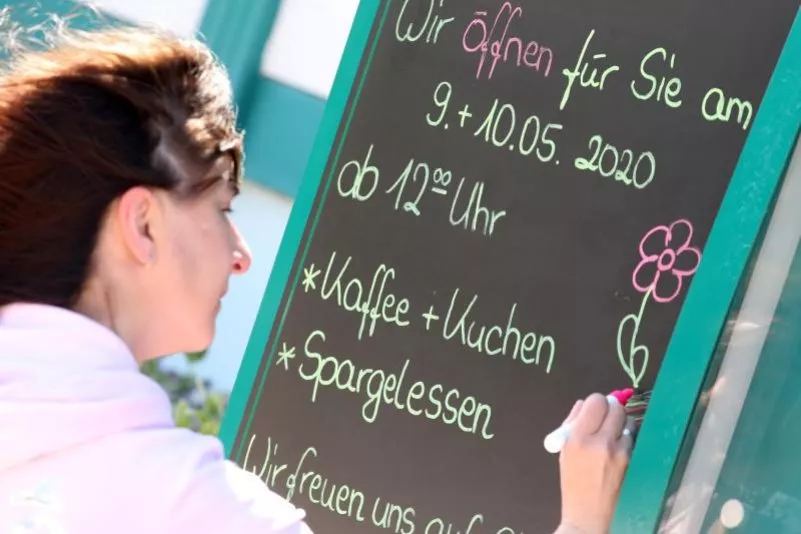 Wir öffnen für Sie am
9.+10.05. 2020
ab 12⁰⁰ Uhr
*Kaffee + Kuchen
*Spargelessen
Wir freuen uns auf